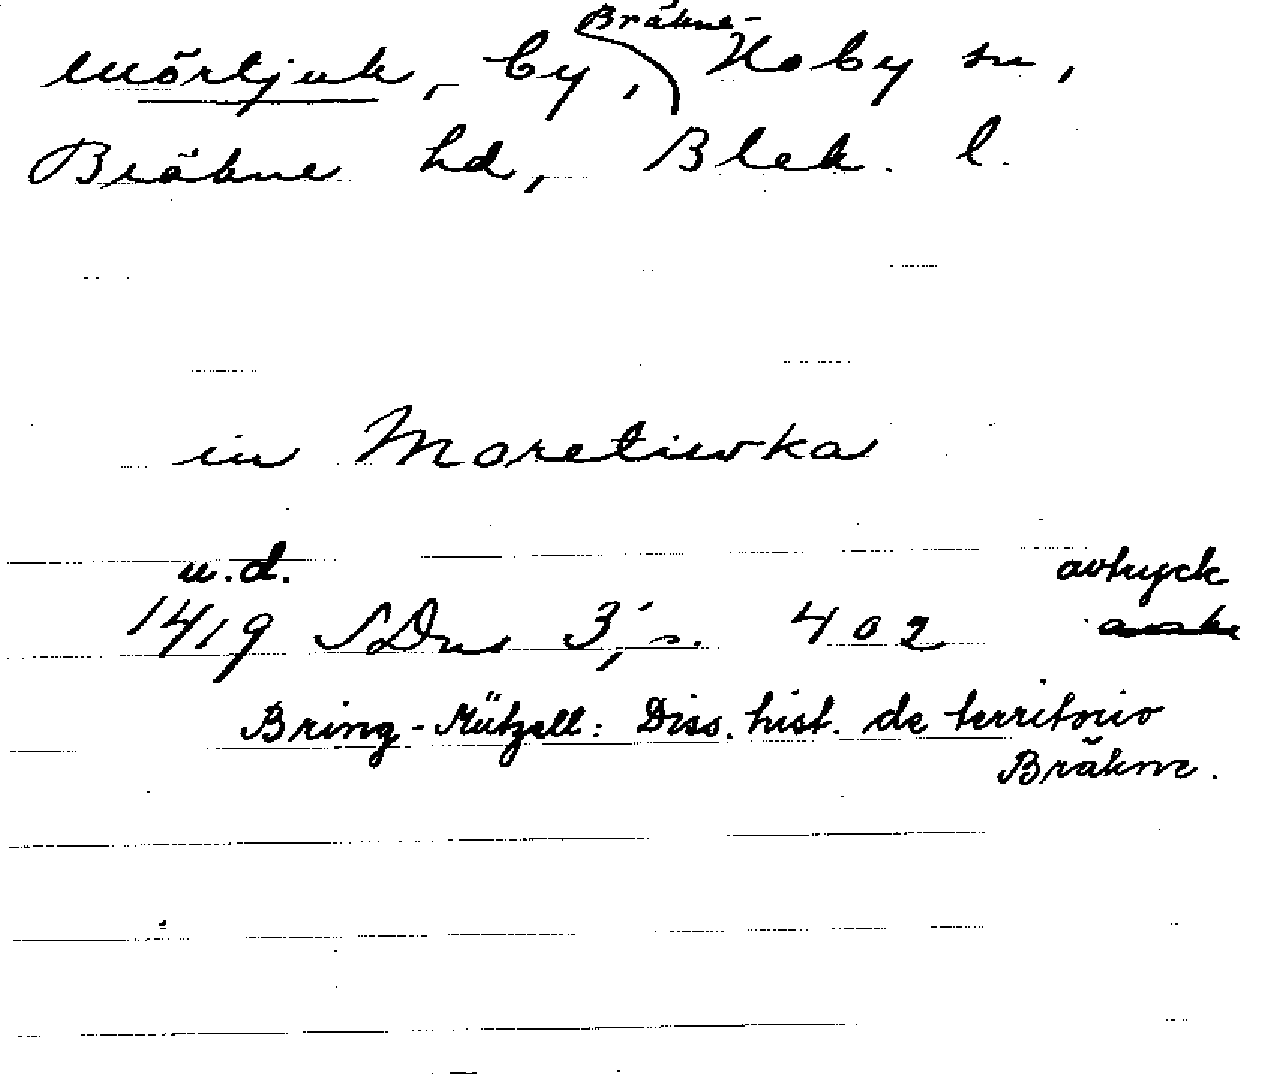 Mörtjuk, by, Bräkne-Hoby sn,
Bräkne hd, Blek. l.
in Moretiwka
u.d. avtryck
1419 SDns 3, s. 402
Bring-Mützell: Diss. hist. de territorio
Bräkne.